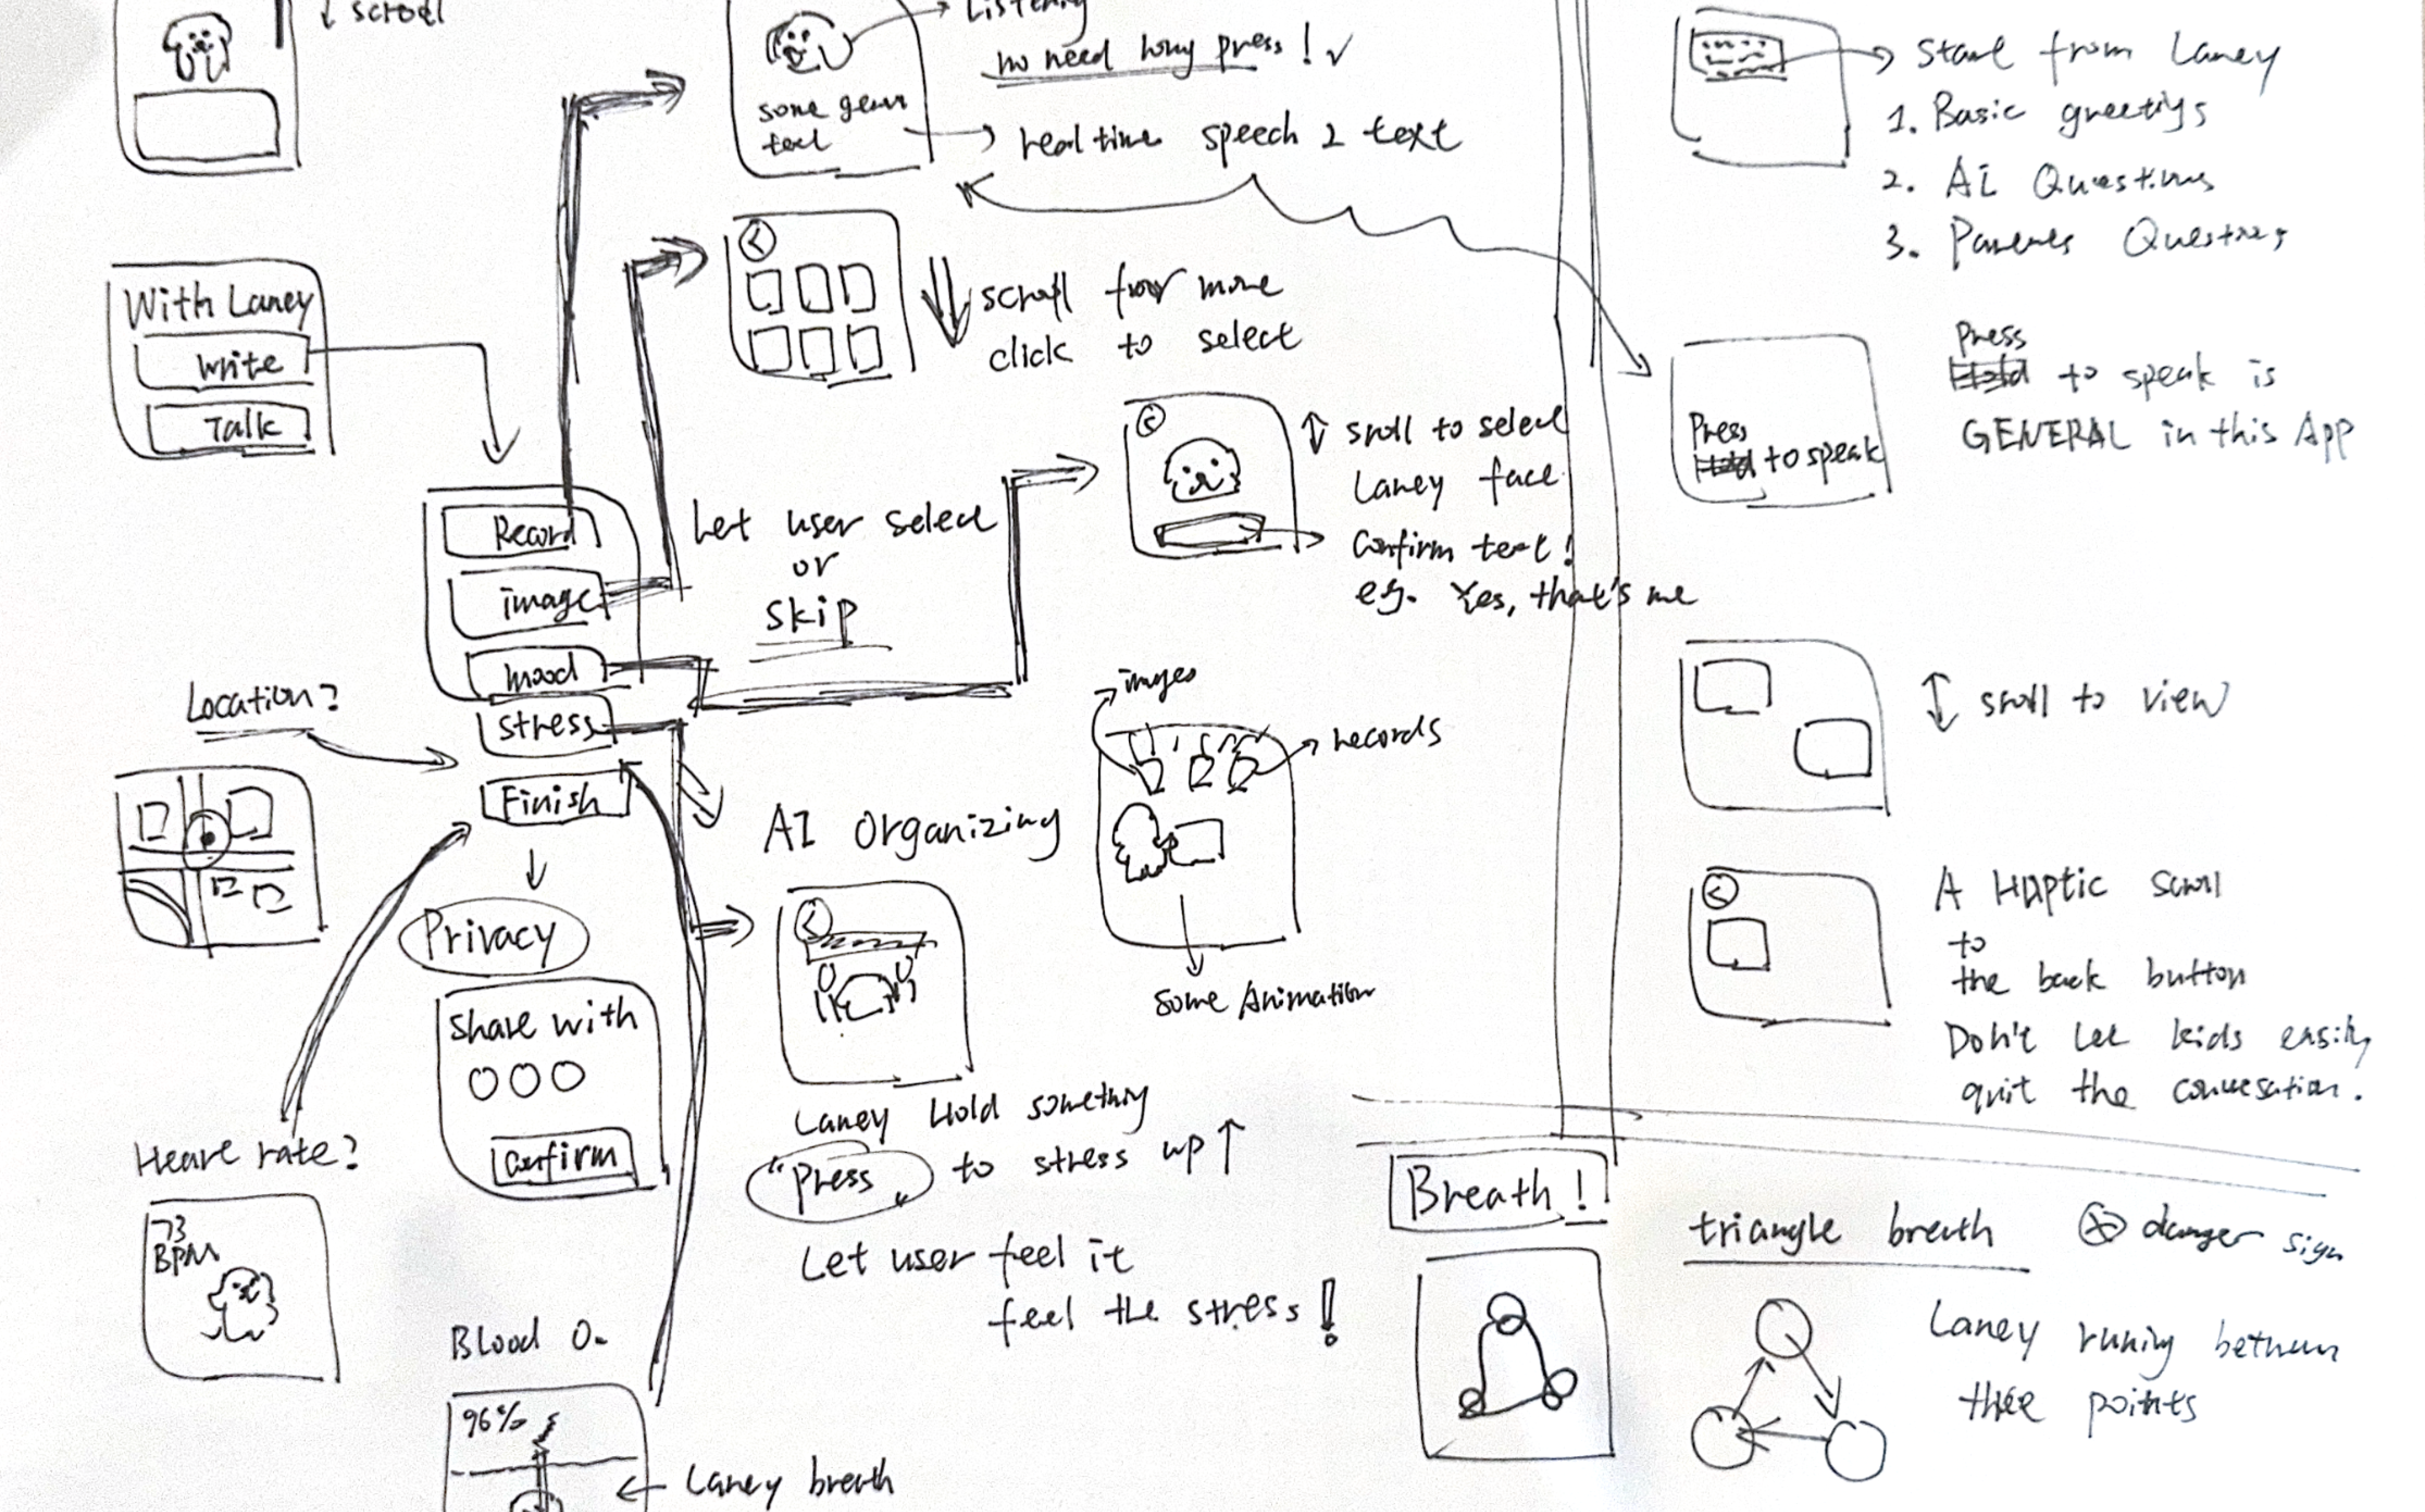 ↓ scroll
With Laney
Write
Talk
Listening
no need long press! ✓
some
text
real time speech 2 text
scroll for more
click to select
Record
image
mood
stress
Finish
Let user select
or
skip
scroll to select
Laney face
Confirm text!
eg. Yes, that's me
Location?
Privacy
Share with
Confirm
Heart rate?
73
BPM
Blood O₂
96%
Laney breath
AI Organizing
Laney Hold something
"Press" to stress up ↑
Let user feel it
feel the stress!
images
records
some Animation
start from Laney
1. Basic greetings
2. AI Questions
3. Parents Questions
Press
to speak
Press
to speak is
GENERAL in this App
scroll to view
A Haptic scroll
to
the back button
Don't let kids easily
quit the conversation.
Breath!
triangle breath
danger sign
Laney runing between
three points